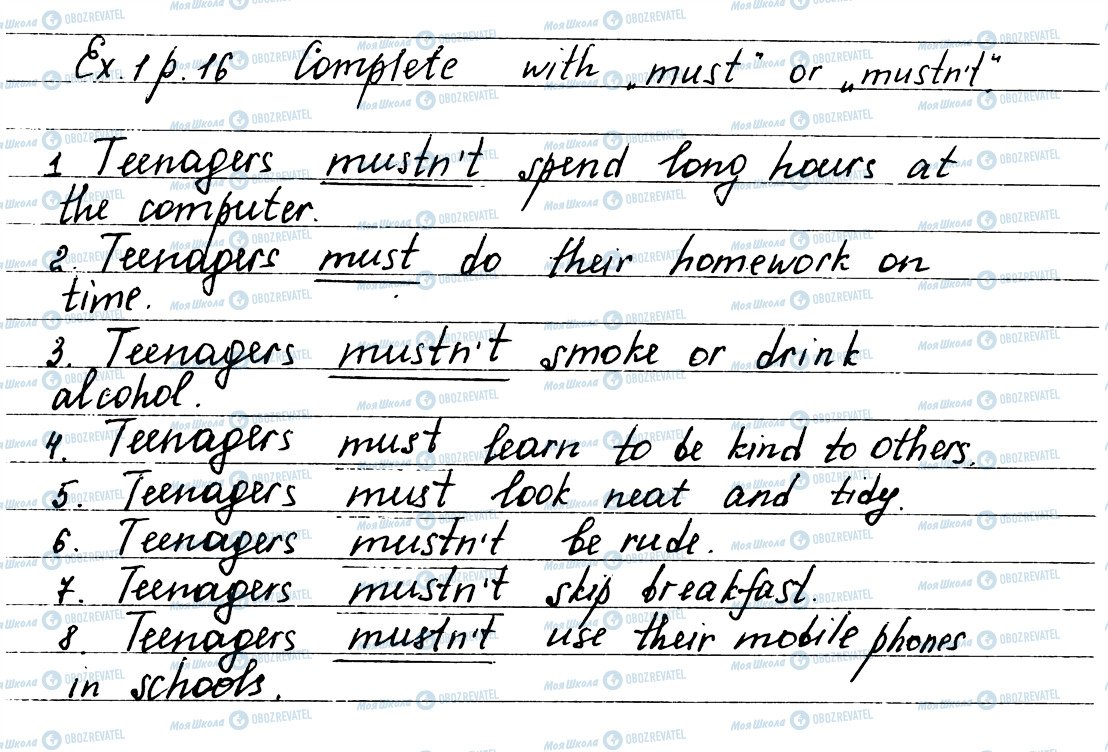 Ex. 1 p. 16 Complete with „must" or „mustn't".
1 Teenagers mustn't spend long hours at
the computer.
2. Teenagers must do their homework on
time.
3. Teenagers mustn't smoke or drink
alcohol.
4. Teenagers must learn to be kind to others.
5. Teenagers must look neat and tidy.
6. Teenagers mustn't be rude.
7. Teenagers mustn't skip breakfast.
8. Teenagers mustn't use their mobile phones
in schools.
МояШкола OBOZREVATEL